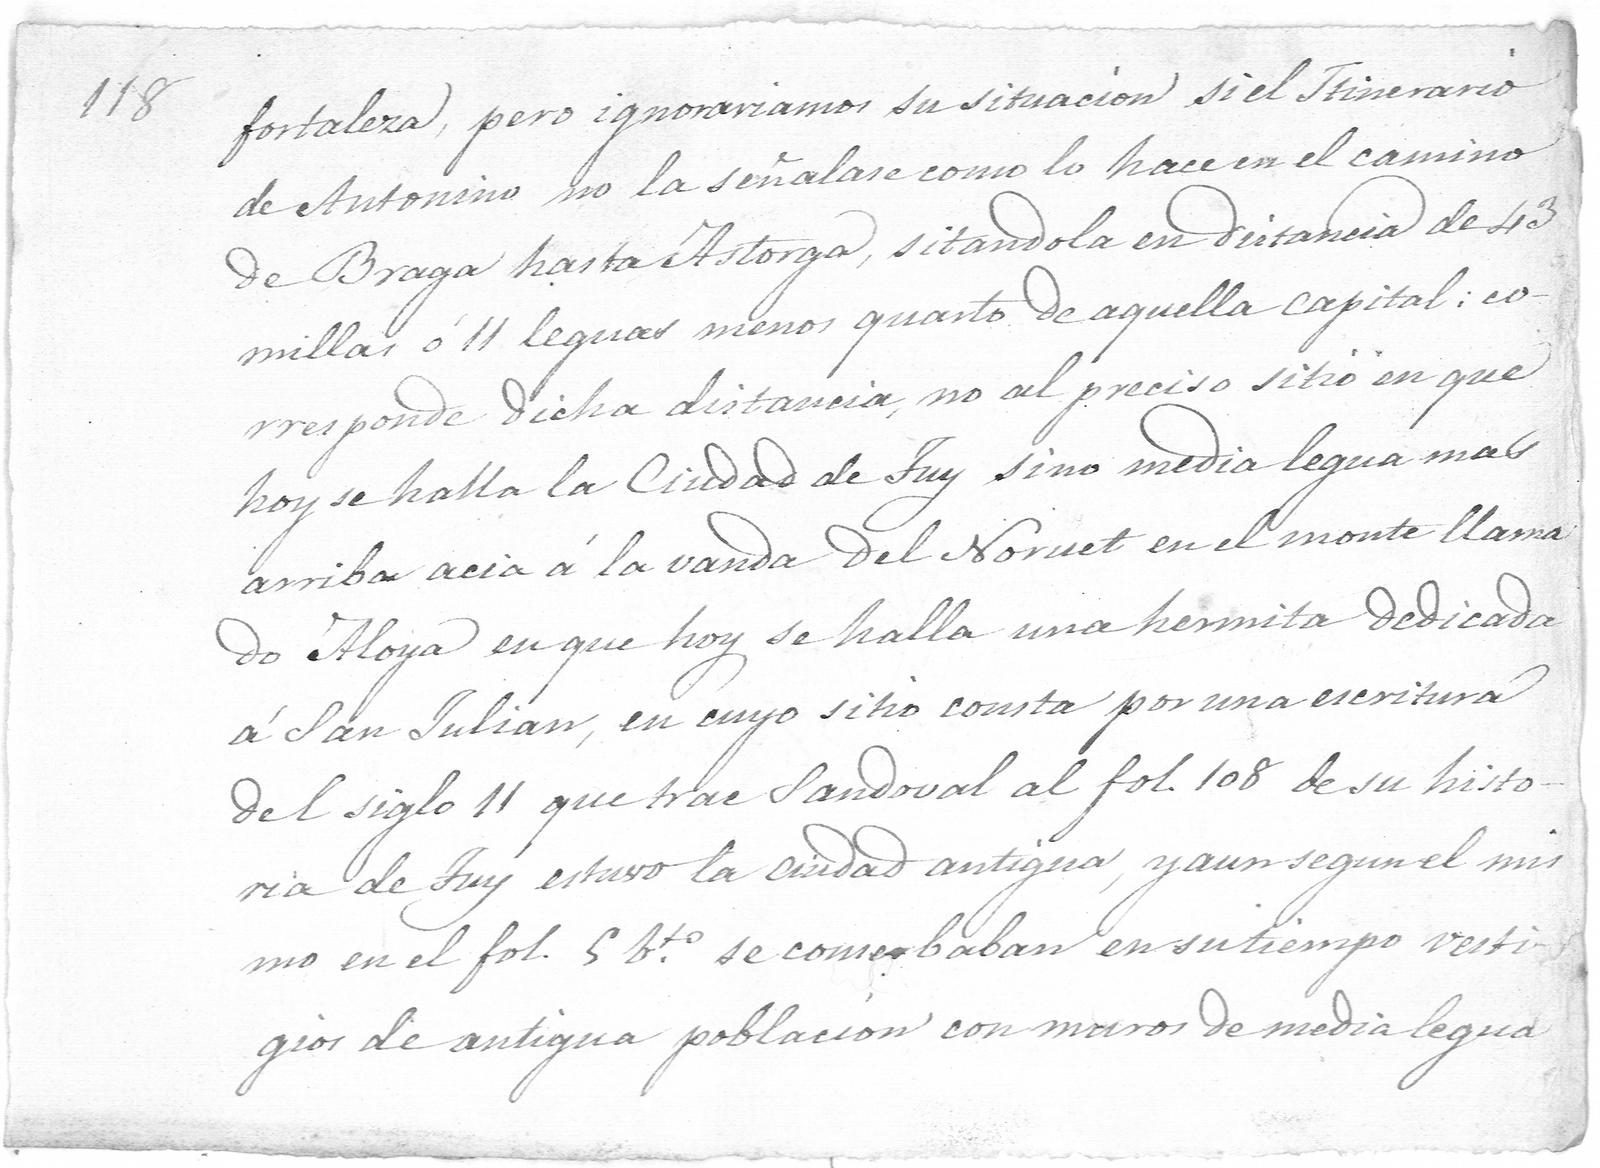 118
fortaleza, pero ignorariamos su situación si el Itinerario
de Antonino no la señalase como lo hace en el camino
de Braga hasta Astorga, sitandola en distancia de 43
millas ó 11 leguas menos quarto de aquella capital: co-
rresponde dicha distancia, no al preciso sitio en que
hoy se halla la Ciudad de Tuy sino media legua mas
arriba acia á la vanda del Noruet en el monte llama
do Aloya en que hoy se halla una hermita dedicada
á San Julian, en cuyo sitio consta por una escritura
del siglo 11 que trae Sandoval al fol. 108 de su histo-
ria de Tuy estuvo la ciudad antigua, y aun segun el mis
mo en el fol. 5 b.to se conserbaban en su tiempo vesti-
gios de antigua población con muros de media legua